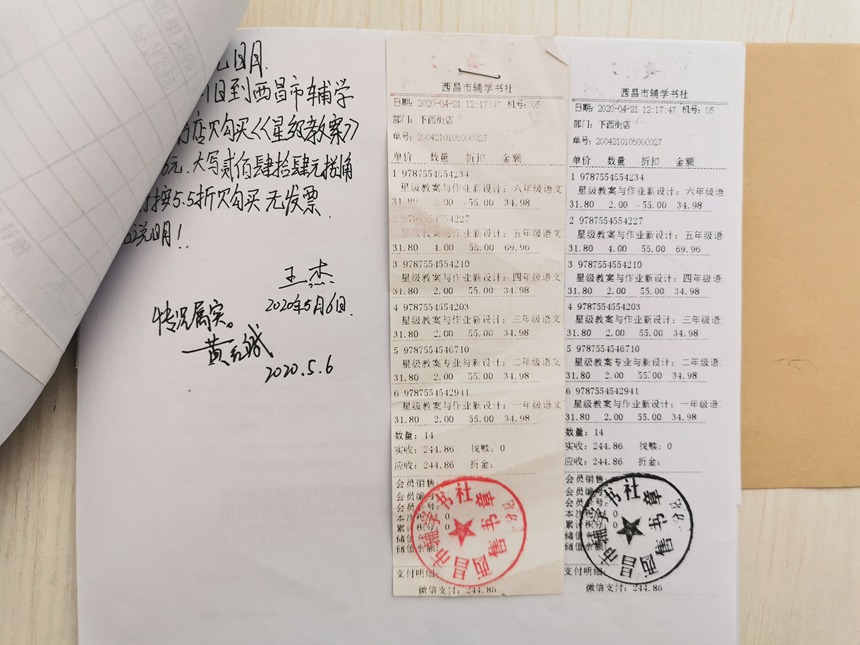 说明
日到西昌市辅学
书店购买《星级教案》
元、大写贰佰肆拾肆元捌角
按5.5折购买 无发票
说明!
王杰
2020年5月6日.
情况属实。
2020.5.6
西昌市辅学书社
日期: 2020-04-21 12:17:47 机号: 05
部门: 下西街店
单号: 2004210105000027
单价 数量 折扣 金额
1 9787554554234
星级教案与作业新设计: 六年级语文
31.80 2.00 55.00 34.98
2 9787554554227
星级教案与作业新设计: 五年级语文
31.80 4.00 55.00 69.96
3 9787554554210
星级教案与作业新设计: 四年级语文
31.80 2.00 55.00 34.98
4 9787554554203
星级教案与作业新设计: 三年级语文
31.80 2.00 55.00 34.98
5 9787554546710
星级教案专业与新设计: 二年级语文
31.80 2.00 55.00 34.98
6 9787554542941
星级教案与作业新设计: 一年级语文
31.80 2.00 55.00 34.98
数量: 14
实收: 244.86 找赎: 0
应收: 244.86 折金:
会员销售
会员编号
会员
本次 0
累计积分: 0
储值
储值余额
支付明细:
微信支付: 244.86
西昌市辅学书社
售书章
西昌市辅学书社
日期: 2020-04-21 12:17:47 机号: 05
部门: 下西街店
单号: 2004210105000027
单价 数量 折扣 金额
1 9787554554234
星级教案与作业新设计: 六年级
31.80 2.00 -55.00 34.98
2 9787554554227
星级教案与作业新设计: 五年级
31.80 4.00 55.00 69.96
3 9787554554210
星级教案与作业新设计: 四年级语
31.80 2.00 55.00 34.98
4 9787554554203
星级教案与作业新设计: 三年级语
31.80 2.00 55.00 34.98
5 9787554546710
星级教案专业与新设计: 二年级语
31.80 2.00 55.00 34.98
6 9787554542941
星级教案与作业新设计: 一年级语
31.80 2.00 55.00 34.98
数量: 14
实收: 244.86 找赎: 0
应收: 244.86 折金:
会员销售
会员编
会员
本次 0
累计积分 0
储值
储值余
支付明细
微信支付: 244.86
西昌市辅学书社
售书章